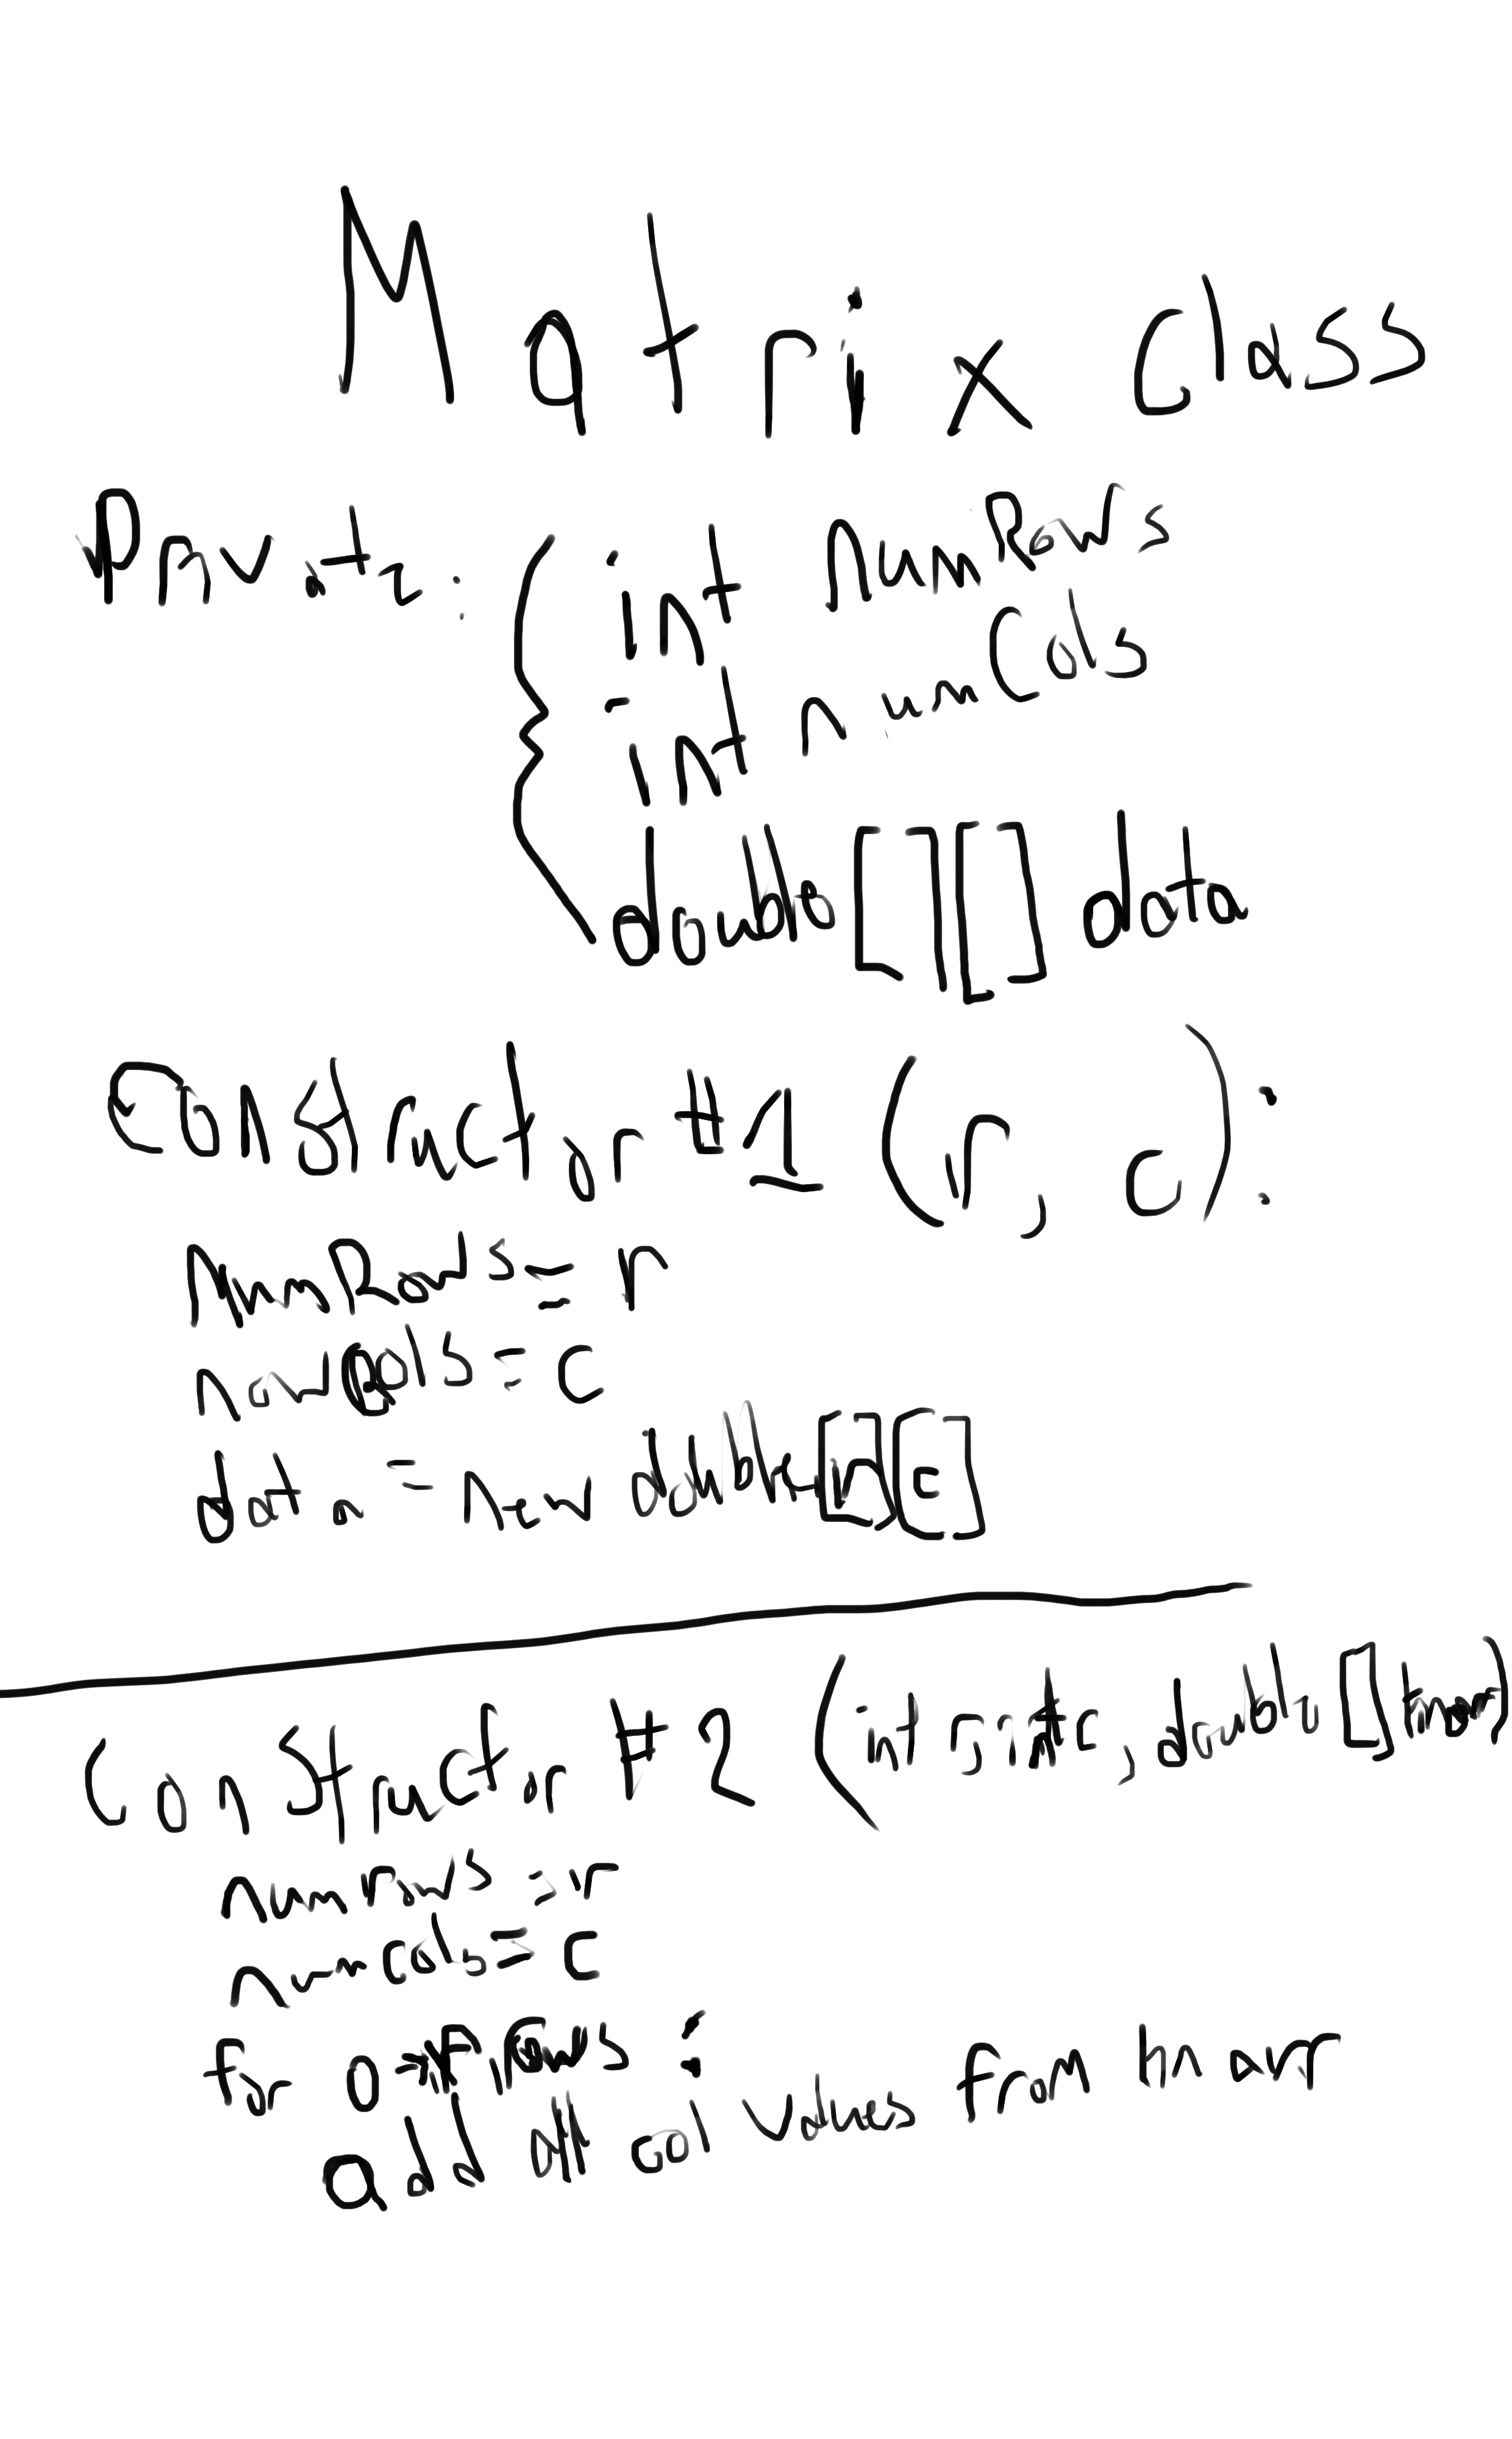 Matrix Class
Private:
int numRows
int numCols
double[][] data
Constructor #1 (r, c):
numRows = r
numCols = c
data = new double[r][c]
Constructor #2 (int r, int c, double[]
numrows = r
numCols = c
for
add all col values from hmour